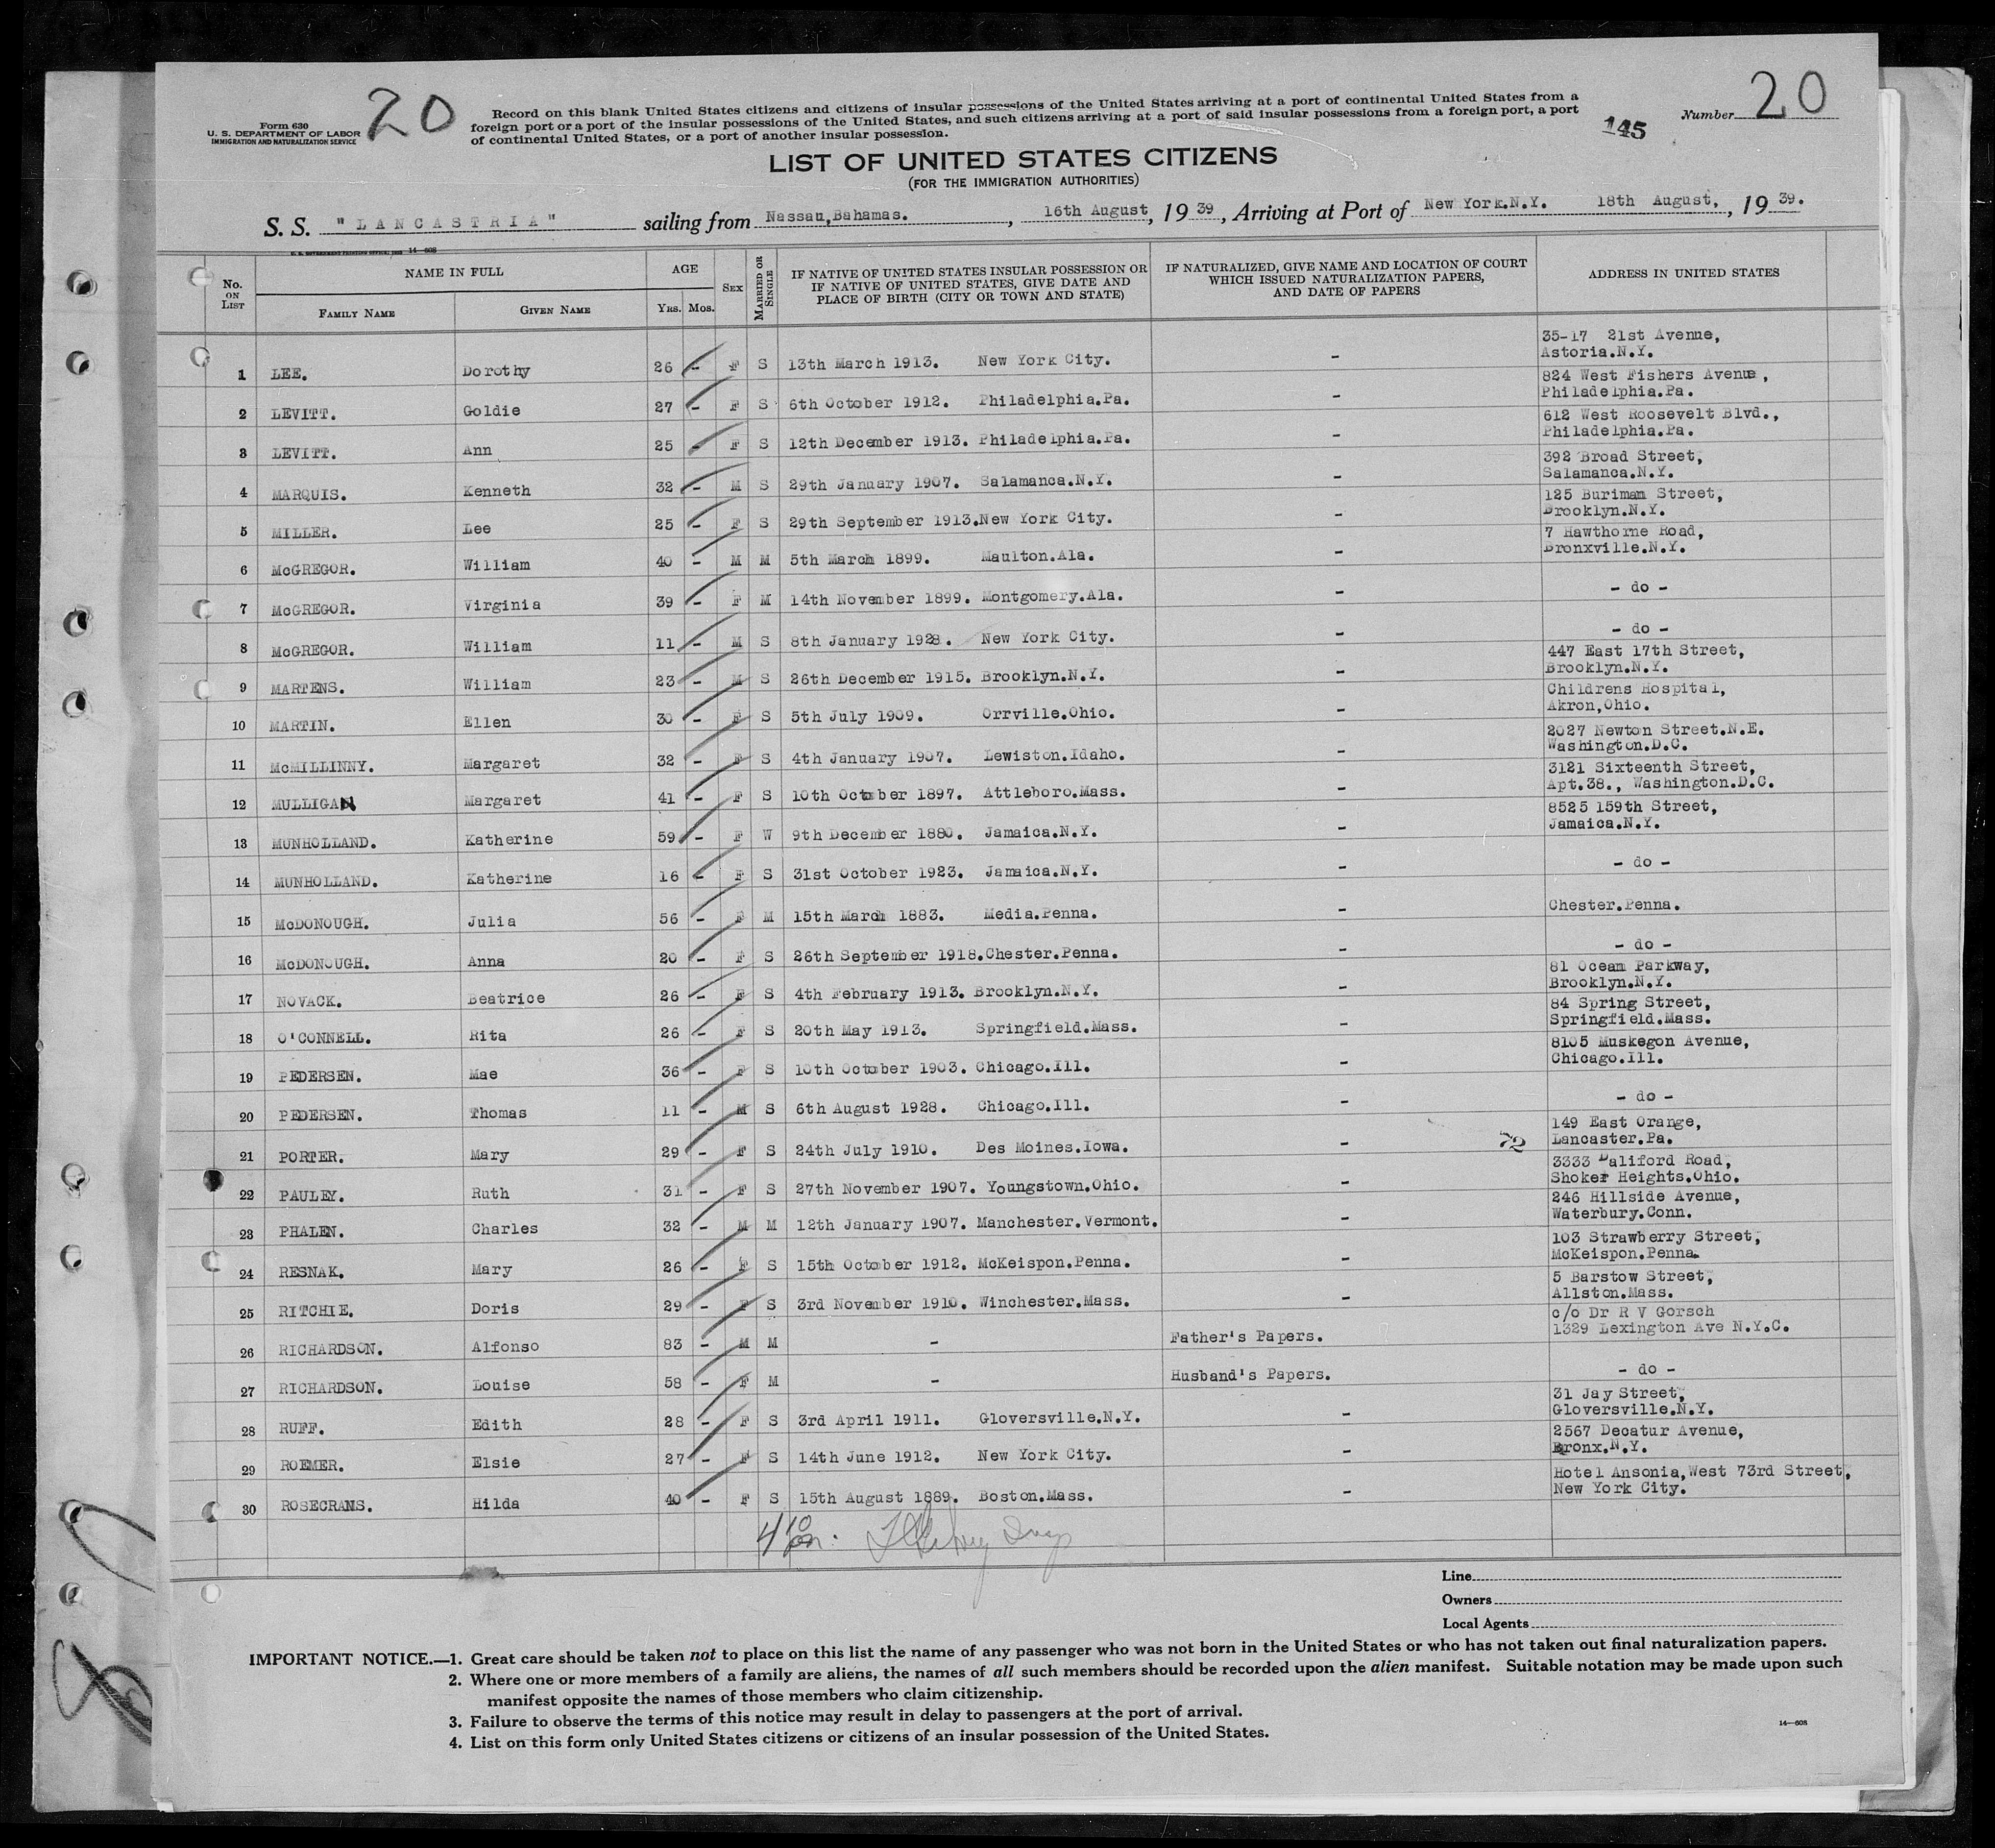 20
Form 630
U. S. DEPARTMENT OF LABOR
IMMIGRATION AND NATURALIZATION SERVICE
Record on this blank United States citizens and citizens of insular possessions of the United States arriving at a port of continental United States from a
foreign port or a port of the insular possessions of the United States, and such citizens arriving at a port of said insular possessions from a foreign port, a port
of continental United States, or a port of another insular possession.
145
Number 20
LIST OF UNITED STATES CITIZENS
(FOR THE IMMIGRATION AUTHORITIES)
S. S. "LANCASTRIA" sailing from Nassau,Bahamas. , 16th August, 19 39, Arriving at Port of New York.N.Y. 18th August, , 19 39.
U. S. GOVERNMENT PRINTING OFFICE: 14—608
No. ON LIST NAME IN FULL FAMILY NAME GIVEN NAME AGE YRS. MOS. SEX MARRIED OR SINGLE IF NATIVE OF UNITED STATES INSULAR POSSESSION OR IF NATIVE OF UNITED STATES, GIVE DATE AND PLACE OF BIRTH (CITY OR TOWN AND STATE) IF NATURALIZED, GIVE NAME AND LOCATION OF COURT WHICH ISSUED NATURALIZATION PAPERS, AND DATE OF PAPERS ADDRESS IN UNITED STATES
1 LEE. Dorothy 26 - F S 13th March 1913. New York City. - 35-17 21st Avenue, Astoria.N.Y.
2 LEVITT. Goldie 27 - F S 6th October 1912. Philadelphia.Pa. - 824 West Fishers Avenue, Philadelphia.Pa.
3 LEVITT. Ann 25 - F S 12th December 1913. Philadelphia.Pa. - 612 West Roosevelt Blvd., Philadelphia.Pa.
4 MARQUIS. Kenneth 32 - M S 29th January 1907. Salamanca.N.Y. - 392 Broad Street, Salamanca.N.Y.
5 MILLER. Lee 25 - F S 29th September 1913.New York City. - 125 Burimam Street, Brooklyn.N.Y.
6 McGREGOR. William 40 - M M 5th March 1899. Maulton.Ala. - 7 Hawthorne Road, Bronxville.N.Y.
7 McGREGOR. Virginia 39 - F M 14th November 1899. Montgomery.Ala. - - do -
8 McGREGOR. William 11 - M S 8th January 1928. New York City. - - do -
9 MARTENS. William 23 - M S 26th December 1915. Brooklyn.N.Y. - 447 East 17th Street, Brooklyn.N.Y.
10 MARTIN. Ellen 30 - F S 5th July 1909. Orrville.Ohio. - Childrens Hospital, Akron,Ohio.
11 McMILLINNY. Margaret 32 - F S 4th January 1907. Lewiston.Idaho. - 2027 Newton Street.N.E. Washington.D.C.
12 MULLIGAN Margaret 41 - F S 10th October 1897. Attleboro.Mass. - 3121 Sixteenth Street, Apt.38., Washington.D.C.
13 MUNHOLLAND. Katherine 59 - F W 9th December 1880. Jamaica.N.Y. - 8525 159th Street, Jamaica.N.Y.
14 MUNHOLLAND. Katherine 16 - F S 31st October 1923. Jamaica.N.Y. - - do -
15 McDONOUGH. Julia 56 - F M 15th March 1883. Media.Penna. - Chester.Penna.
16 McDONOUGH. Anna 20 - F S 26th September 1918.Chester.Penna. - - do -
17 NOVACK. Beatrice 26 - F S 4th February 1913. Brooklyn.N.Y. - 81 Ocean Parkway, Brooklyn.N.Y.
18 O'CONNELL. Rita 26 - F S 20th May 1913. Springfield.Mass. - 84 Spring Street, Springfield.Mass.
19 PEDERSEN. Mae 36 - F S 10th October 1903. Chicago.Ill. - 8105 Muskegon Avenue, Chicago.Ill.
20 PEDERSEN. Thomas 11 - M S 6th August 1928. Chicago.Ill. - - do -
21 PORTER. Mary 29 - F S 24th July 1910. Des Moines.Iowa. - 72 149 East Orange, Lancaster.Pa.
22 PAULEY. Ruth 31 - F S 27th November 1907. Youngstown.Ohio. - 3333 Daliford Road, Shoker Heights.Ohio.
23 PHALEN. Charles 32 - M M 12th January 1907. Manchester.Vermont. - 246 Hillside Avenue, Waterbury.Conn.
24 RESNAK. Mary 26 - F S 15th October 1912. McKeispon.Penna. - 103 Strawberry Street, McKeispon.Penna.
25 RITCHIE. Doris 29 - F S 3rd November 1910. Winchester.Mass. - 5 Barstow Street, Allston.Mass.
26 RICHARDSON. Alfonso 83 - M M - Father's Papers. c/o Dr R V Gorsch 1329 Lexington Ave N.Y.C.
27 RICHARDSON. Louise 58 - F M - Husband's Papers. - do -
28 RUFF. Edith 28 - F S 3rd April 1911. Gloversville.N.Y. - 31 Jay Street, Gloversville.N.Y.
29 ROEMER. Elsie 27 - F S 14th June 1912. New York City. - 2567 Decatur Avenue, Bronx.N.Y.
30 ROSECRANS. Hilda 40 - F S 15th August 1889. Boston.Mass. - Hotel Ansonia,West 73rd Street, New York City.
Line
Owners
Local Agents
IMPORTANT NOTICE.—1. Great care should be taken not to place on this list the name of any passenger who was not born in the United States or who has not taken out final naturalization papers.
2. Where one or more members of a family are aliens, the names of all such members should be recorded upon the alien manifest. Suitable notation may be made upon such
manifest opposite the names of those members who claim citizenship.
3. Failure to observe the terms of this notice may result in delay to passengers at the port of arrival.
4. List on this form only United States citizens or citizens of an insular possession of the United States.
14—608